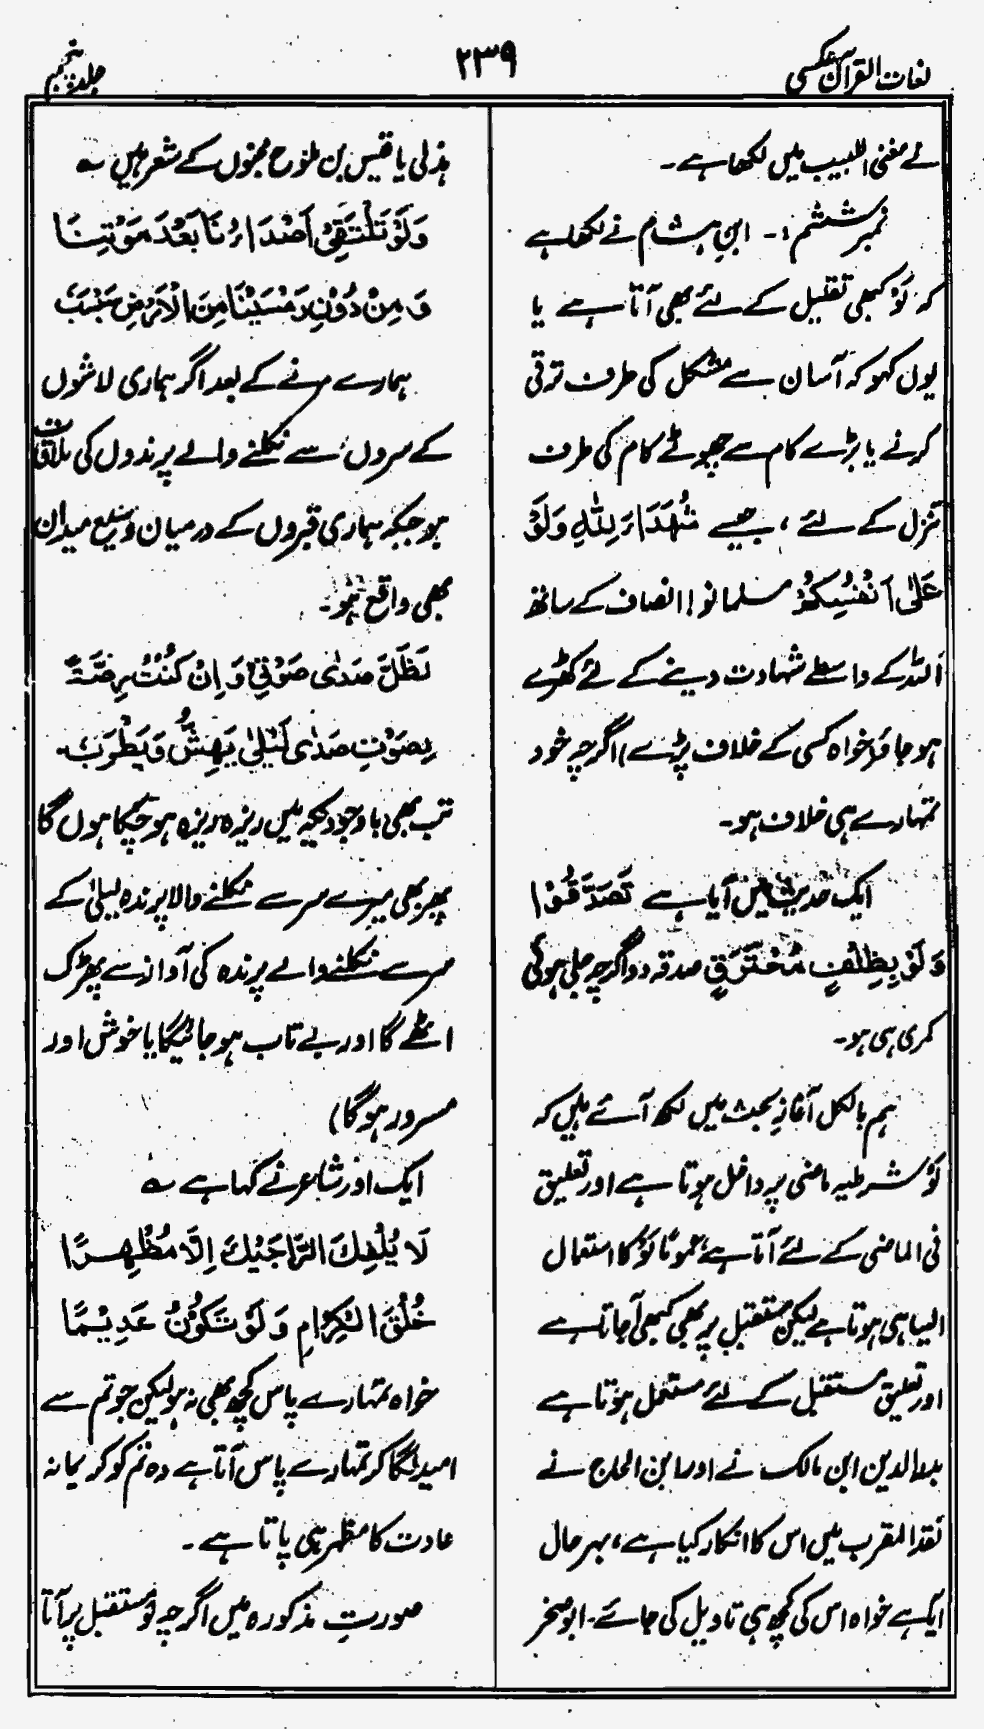 لغات القرآن عکسی
۲۳۹
جلد پنجم
نے مغنی اللبیب میں لکھا ہے۔
نمبر ششم :۔ ابنِ ہشام نے لکھا ہے
کہ لَوْ کبھی تقلیل کے لئے بھی آتا ہے یا
یوں کہو کہ آسان سے مشکل کی طرف ترقی
کرنے یا بڑے کام سے چھوٹے کام کی طرف
تنزل کے لئے ، جیسے شُهَدَاءَ لِلّٰهِ وَلَوْ
عَلٰی اَنْفُسِکُمْ مسلمانو! انصاف کے ساتھ
اللہ کے واسطے شہادت دینے کے لئے کھڑے
ہو جاؤ (خواہ کسی کے خلاف پڑے) اگرچہ خود
تمہارے ہی خلاف ہو۔
ایک حدیث میں آیا ہے تَصَدَّقُوْا
وَلَوْ بِظِلْفٍ مُحْتَرَقٍ صدقہ دو اگرچہ جلی ہوئی
کھری ہی ہو۔
ہم بالکل آغازِ بحث میں لکھ آئے ہیں کہ
لَوْ شرطیہ ماضی پر داخل ہوتا ہے اور تعلیق
فی الماضی کے لئے آتا ہے، عموماً لَوْ کا استعمال
ایسا ہی ہوتا ہے لیکن مستقبل پر بھی کبھی آجاتا ہے
اور تعلیق مستقبل کے لئے مستعمل ہوتا ہے
بدر الدین ابن مالک نے اور ابن الحاج نے
نقد المقرب میں اس کا انکار کیا ہے، بہرحال
ایک ہے خواہ اس کی کچھ ہی تاویل کی جائے۔ ابو صخر
ہذلی یا قیس بن ملوح مجنوں کے شعر میں ؎
وَلَوْ تَلْتَقِیْ اَصْدَاءُنَا بَعْدَ مَوْتِنَا
وَمِنْ دُوْنِ رَمْسَیْنَا مِنَ الْاَرْضِ سَبْسَبُ
ہمارے مرنے کے بعد اگر ہماری لاشوں
کے سروں سے نکلنے والے پرندوں کی ملاقات
ہو جبکہ ہماری قبروں کے درمیان وسیع میدان
بھی واقع ہو۔
لَظَلَّ صَدٰی صَوْتِیْ وَاِنْ کُنْتُ رِمَّۃً
لِصَوْتِ صَدٰی لَیْلٰی یَهِشُّ وَیَطْرَبُ۔
تب بھی باوجودیکہ میں ریزہ ریزہ ہو چکا ہوں گا
پھر بھی میرے سر سے نکلنے والا پرندہ لیلیٰ کے
سر سے نکلنے والے پرندہ کی آواز سے پھڑک
اٹھے گا اور بے تاب ہو جائیگا یا خوش اور
مسرور ہوگا)
ایک اور شاعر نے کہا ہے ؎
لَا یُلْفِکَ الرَّاجِیْکَ اِلَّا مُظْهِرًا
خُلُقَ الْکِرَامِ وَلَوْ تَکُوْنُ عَدِیْمًا
خواہ تمہارے پاس کچھ بھی نہ ہو لیکن جو تم سے
امید لگا کر تمہارے پاس آتا ہے وہ تم کو کریمانہ
عادت کا مظہر ہی پاتا ہے۔
صورتِ مذکورہ میں اگرچہ لَوْ مستقبل پر آتا